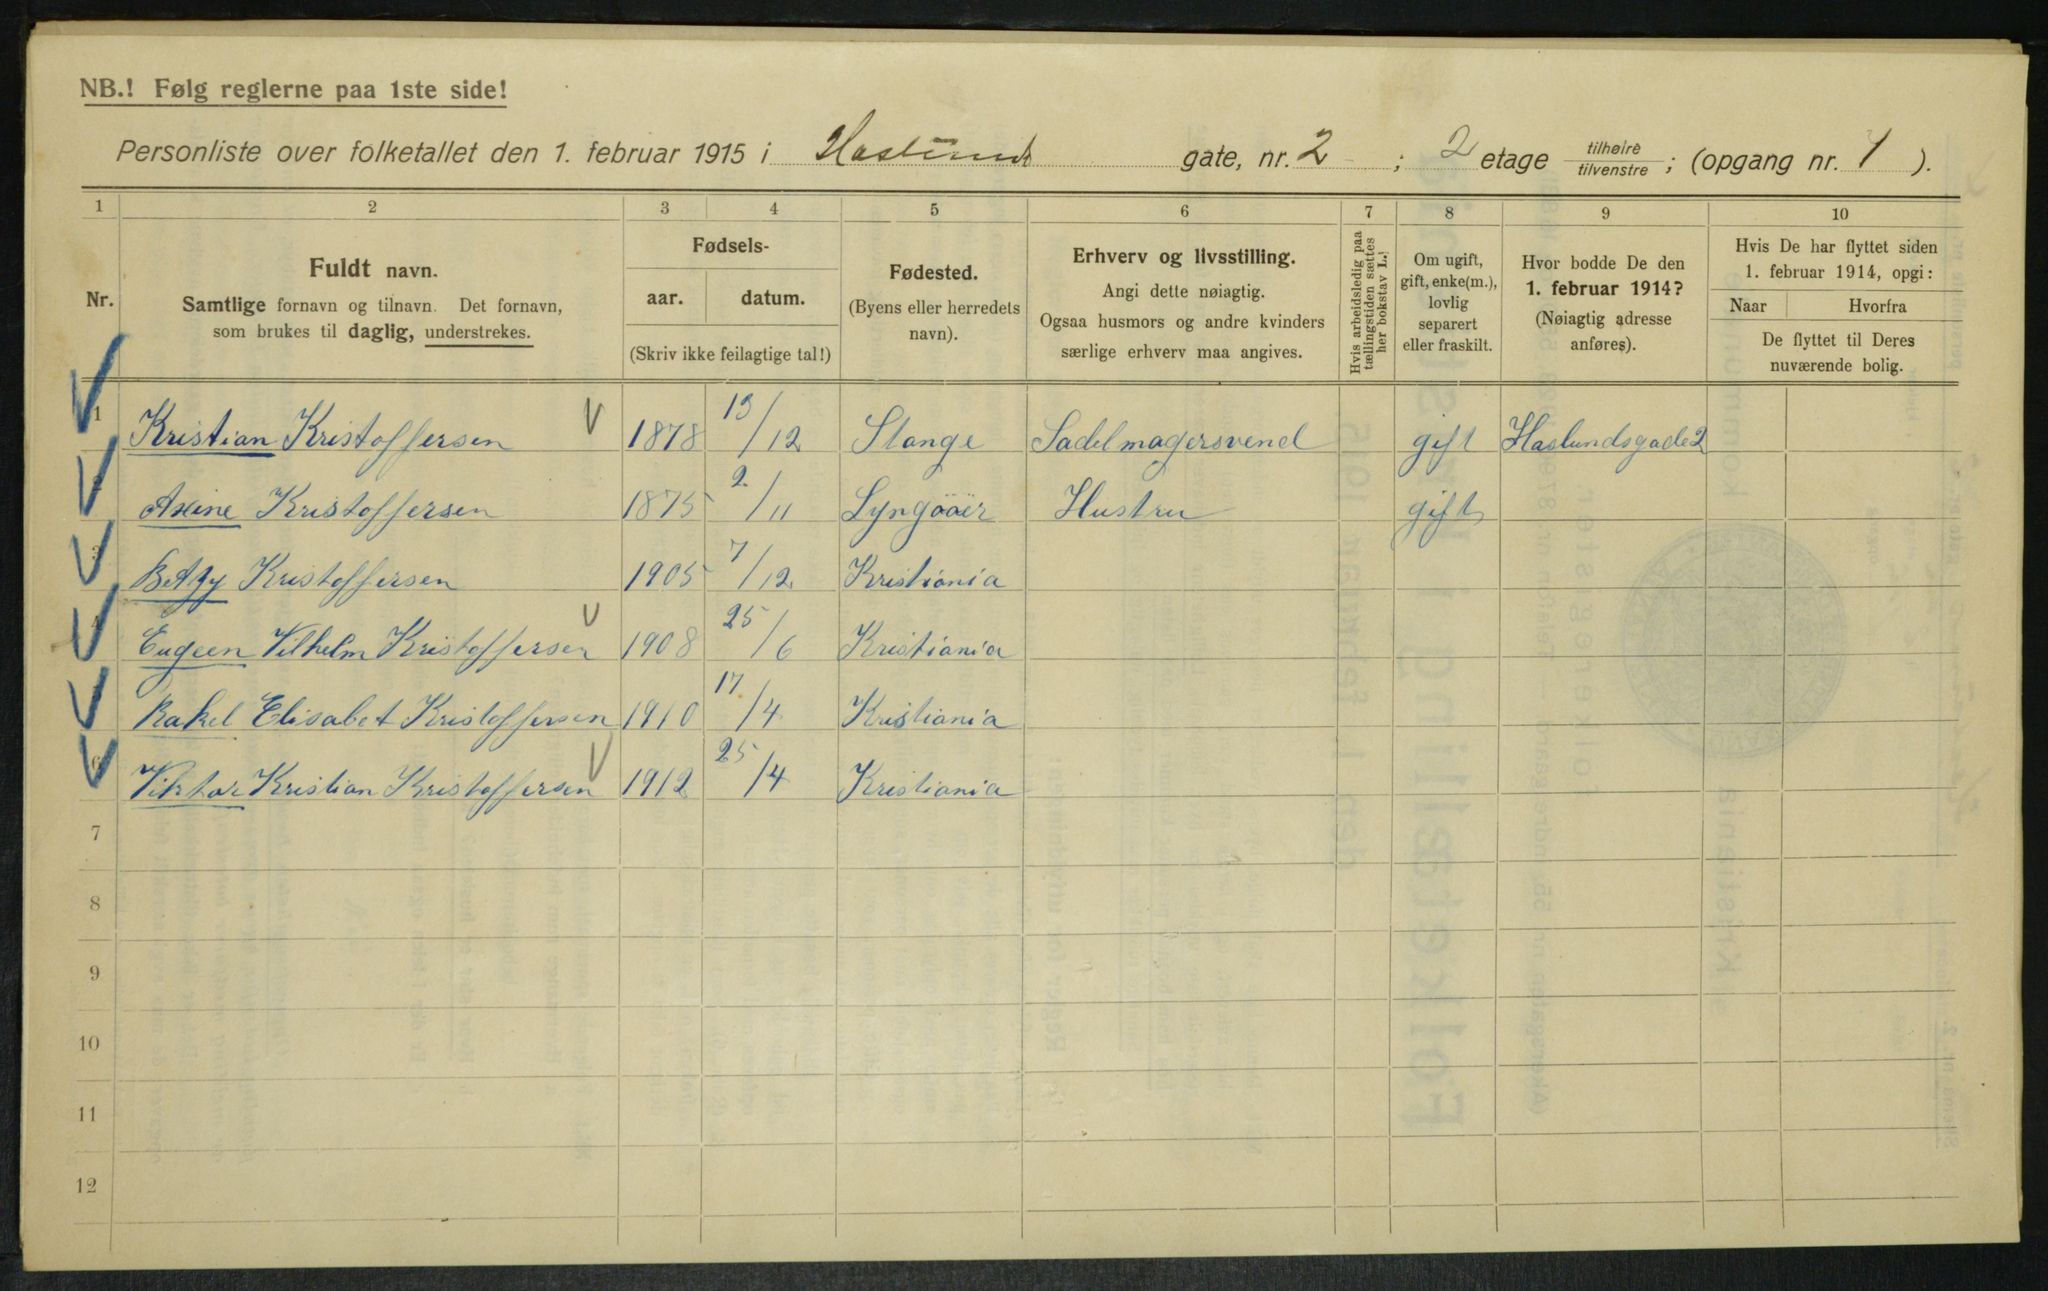 NB.! Følg reglerne paa 1ste side!
Personliste over folketallet den 1. februar 1915 i Haslunds gate, nr. 2 ; 2 etage tilhøire tilvenstre ; (opgang nr. 1 ).
1 2 3 4 5 6 7 8 9 10
Nr.
Fuldt navn.
Samtlige fornavn og tilnavn. Det fornavn,
som brukes til daglig, understrekes.
Fødsels-
aar. datum.
(Skriv ikke feilagtige tal!)
Fødested.
(Byens eller herredets
navn).
Erhverv og livsstilling.
Angi dette nøiagtig.
Ogsaa husmors og andre kvinders
særlige erhverv maa angives.
Hvis arbeidsledig paa
tællingstiden sættes
her bokstav L.!
Om ugift,
gift, enke(m.),
lovlig
separert
eller fraskilt.
Hvor bodde De den
1. februar 1914?
(Nøiagtig adresse
anføres).
Hvis De har flyttet siden
1. februar 1914, opgi:
Naar Hvorfra
De flyttet til Deres
nuværende bolig.
1 Kristian Kristoffersen 1878 13/12 Stange Sadelmagersvend gift Haslundsgade 2
Axine Kristoffersen 1875 2/11 Lyngöör Hustru gift
3 Betzy Kristoffersen 1905 7/12 Kristiania
4 Eugeen Vilhelm Kristoffersen 1908 25/6 Kristiania
Rakel Elisabet Kristoffersen 1910 17/4 Kristiania
6 Viktor Kristian Kristoffersen 1912 25/4 Kristiania
7
8
9
10
11
12